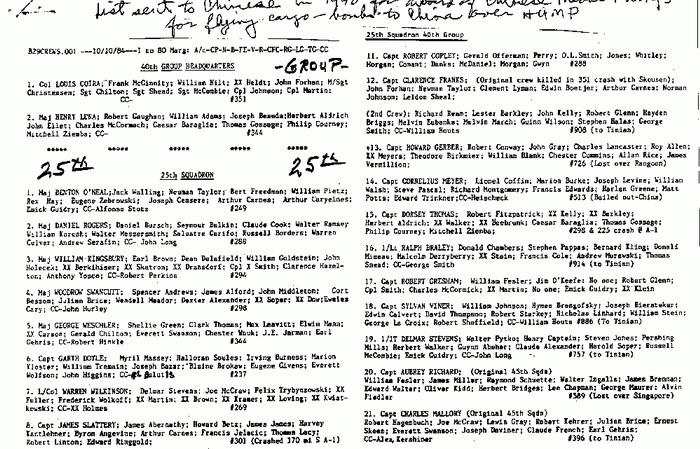 List sent to Chinese in 19 for award of Chinese Medal
for flying cargo - bombs to China over HUMP
B29CREWS.001 ---10/10/84---1 to 80 Marg: A/c-CP-N-B-FE-V-R-CFC-RG-LG-TG-CC
40th GROUP HEADQUARTERS -GROUP-
1. Col LOUIS COIRA; Frank McGinnity; William Hilt; XX Heldt; John Forhan; M/Sgt
Christensen; Sgt Chilton; Sgt Shead; Sgt McCombie; Cpl Johnson; Cpl Martin;
CC- #351
2. Maj HENRY LUNA; Robert Gaughan; William Adams; Joseph Beneda; Herbert Aldrich
John Ellet; Charles McCormach; Caesar Baraglia; Thomas Gossage; Philip Courney;
Mitchell Ziemba; CC- #344
***** ***** ***** *****
25th 25th
25th SQUADRON
1. Maj BENTON O'NEAL; Jack Walling; Neuman Taylor; Bert Freedman; William Pietz;
Rex Hay; Eugene Zebrowski; Joseph Censere; Arthur Carnes; Arthur Coryelnes;
Emick Guidry; CC-Alfonso Stotz #249
2. Maj DANIEL ROGERS; Daniel Barsch; Seymour Balkin; Claude Cook; Walter Ramsey
William Roesch; Walter Messersmith; Salvatre Carifo; Russell Borders; Warren
Culver; Andrew Serafin; CC- John Long #288
3. Maj WILLIAM KINGSBURY; Earl Brown; Dean Delafield; William Goldstein; John
Holecek; XX Berkihiser; XX Shatron; XX Dransdorf; Cpl X Smith; Clarence Hazel-
ton; Anthony Yosco; CC-Robert Perkins #294
4. Maj WOODROW SWANCUTT; Spencer Andrews; James Alford; John Middleton; Cort
Besson; Julian Brice; Wendell Meador; Dexter Alexander; XX Soper; XX Dow; Eweles
Cary; CC-John Hurley #298
5. Maj GEORGE WESCHLER; Shellie Green; Clark Thomas; Max Leavitt; Elwin Mann;
XX Carson; Gerald Chilton; Everett Swanson; Chester Wnuk; J.E. Jarman; Earl
Gehris; CC-Robert Hinkle #344
6. Capt GARTH DOYLE; Myril Massey; Halloran Soules; Irving Burness; Marion
Kloster; William Tremain; Joseph Bazar; Blaine Brokaw; Eugene Givens; Everett
Wolfson; John Higgins; CC- #237
7. 1/Col WARREN WILKINSON; Delmar Stevens; Joe McCraw; Felix Trybynzowski; XX
Fuller; Frederick Wolkoff; XX Martin; XX Brown; XX Kramer; XX Loving; XX Kwiat-
kowski; CC-XX Holmes #269
8. Capt JAMES SLATTERY; James Abernathy; Howard Betz; James James; Harvey
Kantlehner; Byron Angevine; Arthur Carnes; Francis Jelacic; Thomas Lacy;
Robert Linton; Edward Ringgold; #301 (Crashed 170 mi S A-1)
25th Squadron 40th Group
11. Capt ROBERT COPLEY; Gerald Offerman; Perry; O.L.Smith; Jones; Whitley;
Morgan; Conant; Hanks; McDaniel; Morgan; Gwyn #288
12. Capt CLARENCE FRANKS; (Original crew killed in 351 crash with Skousen);
John Forhan; Newman Taylor; Clement Lyman; Edwin Boetjer; Arthur Carnes; Norman
Johnson; Leldon Sheal;
(2nd Crew); Richard Ewan; Lester Barkley; John Kelly; Robert Glenn; Hayden
Briggs; Melvin Eubanks; Melvin March; Guinn Wilson; Stephen Halas; George
Smith; CC-William Houts #908 (to Tinian)
*13. Capt HOWARD GERBER; Robert Conway; John Gray; Charles Lancaster; Roy Allen;
XX Meyers; Theodore Birkmier; William Blank; Chester Commins; Allan Rice; James
Vermillion; #726 (Lost over Rangoon)
14. Capt CORNELIUS MEYER; Lionel Coffin; Marion Burke; Joseph Levine; William
Walsh; Steve Pascal; Richard Montgomery; Francis Edwards; Harlan Greene; Matt
Potts; Edward Trinkner; CC-Heischeck #513 (Bailed out-China)
15. Capt DORSEY THOMAS; Robert Fitzpatrick; XX Kelly; XX Barkley;
Herbert Aldrich; X Walker; XX Boebrunk; Caesar Baraglia; Thomas Gossage;
Philip Courney; Mitchell Zienba; #298 & 225 crash @ A-1
16. 1/Lt RALPH BRALEY; Donald Chambers; Stephen Pappas; Bernard King; Donald
Misseau; Malcolm Derryberry; XX Stain; Francis Cole; Andrew Morawski; Thomas
Snead; CC-George Smith #924 (to Tinian)
17. Capt ROBERT GRISHAM; William Fesler; Jim O'Keefe; No one; Robert Glenn;
Cpl Smith; Charles McCormick; XX Martin; No one; Emick Guidry; XX Klein
18. Capt SYLVAN VINER; William Johnson; Hymes Brongofsky; Joseph Bierstekur;
Edwin Calvert; David Thompson; Robert Starkey; Nicholas Linhard; William Stein;
George La Croix; Robert Sheffield; CC-William Houts #886 (To Tinian)
19. 1/IT DELMAR STEVENS; Walter Pytko; Henry Captain; Steven Jones; Pershing
Mills; Herbert Walker; Guynn Absher; Claude Alexander; Harold Soper; Russell
McCombie; Emick Guidry; CC-John Long #757 (to Tinian)
20. Capt AUBREY RICHARD; (Original 45th Sqd)
William Fesler; James Miller; Raymond Schuette; Walter Ingalls; James Brennan;
Edward Walter; Oliver Kidd; Herbert Bridges; Lee Chapman; George Maurer; Alvin
Fiedler #589 (Lost over Singapore)
21. Capt CHARLES MALLORY (Original 45th Sqds)
Robert Hagenbuch; Joe McCraw; Lewis Gray; Robert Kehrer; Julian Brice; Ernest
Skeen; Everett Swanson; Joseph Daviner; Claude French; Earl Gehris;
CC-Alex, Kershiner #396 (to Tinian)